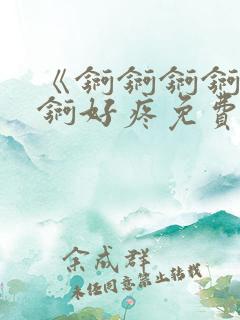 《锕锕锕锕
锕好疼免費
余成群
未经同意禁止转载